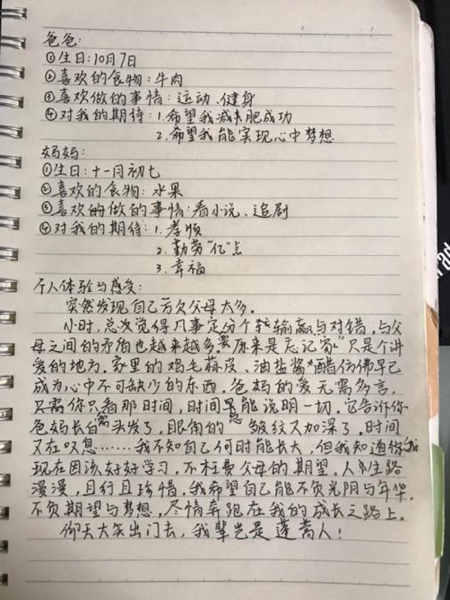 爸爸:
①生日:10月7日
②喜欢的食物:牛肉
③喜欢做的事情:运动、健身
④对我的期待:1.希望我减肥成功
2.希望我能实现心中梦想
妈妈:
①生日:十一月初七
②喜欢的食物:水果
③喜欢的做的事情:看小说、追剧
④对我的期待:1.孝顺
2.勤劳"亿"点
3.幸福
个人体验与感受:
突然发现自己亏欠父母太多。
小时,总次觉得凡事定分个输赢与对错,与父
母之间的矛盾也越来越多。原来是忘记"家"只是个讲
爱的地方。家里的鸡毛蒜皮、油盐酱醋仿佛早已
成为心中不可缺少的东西。爸妈的爱无需多言,
只需你只看那时间,时间早能说明一切。它告诉你
爸妈长白头发了,眼角的皱纹又加深了,时间
又在叹息……我不知自己何时能长大,但我知道
现在因该好好学习,不枉费父母的期望。人生路
漫漫,且行且珍惜。我希望自己能不负光阴与年华,
不负期望与梦想,尽情奔跑在我的成长之路上。
仰天大笑出门去,我辈岂是蓬蒿人!